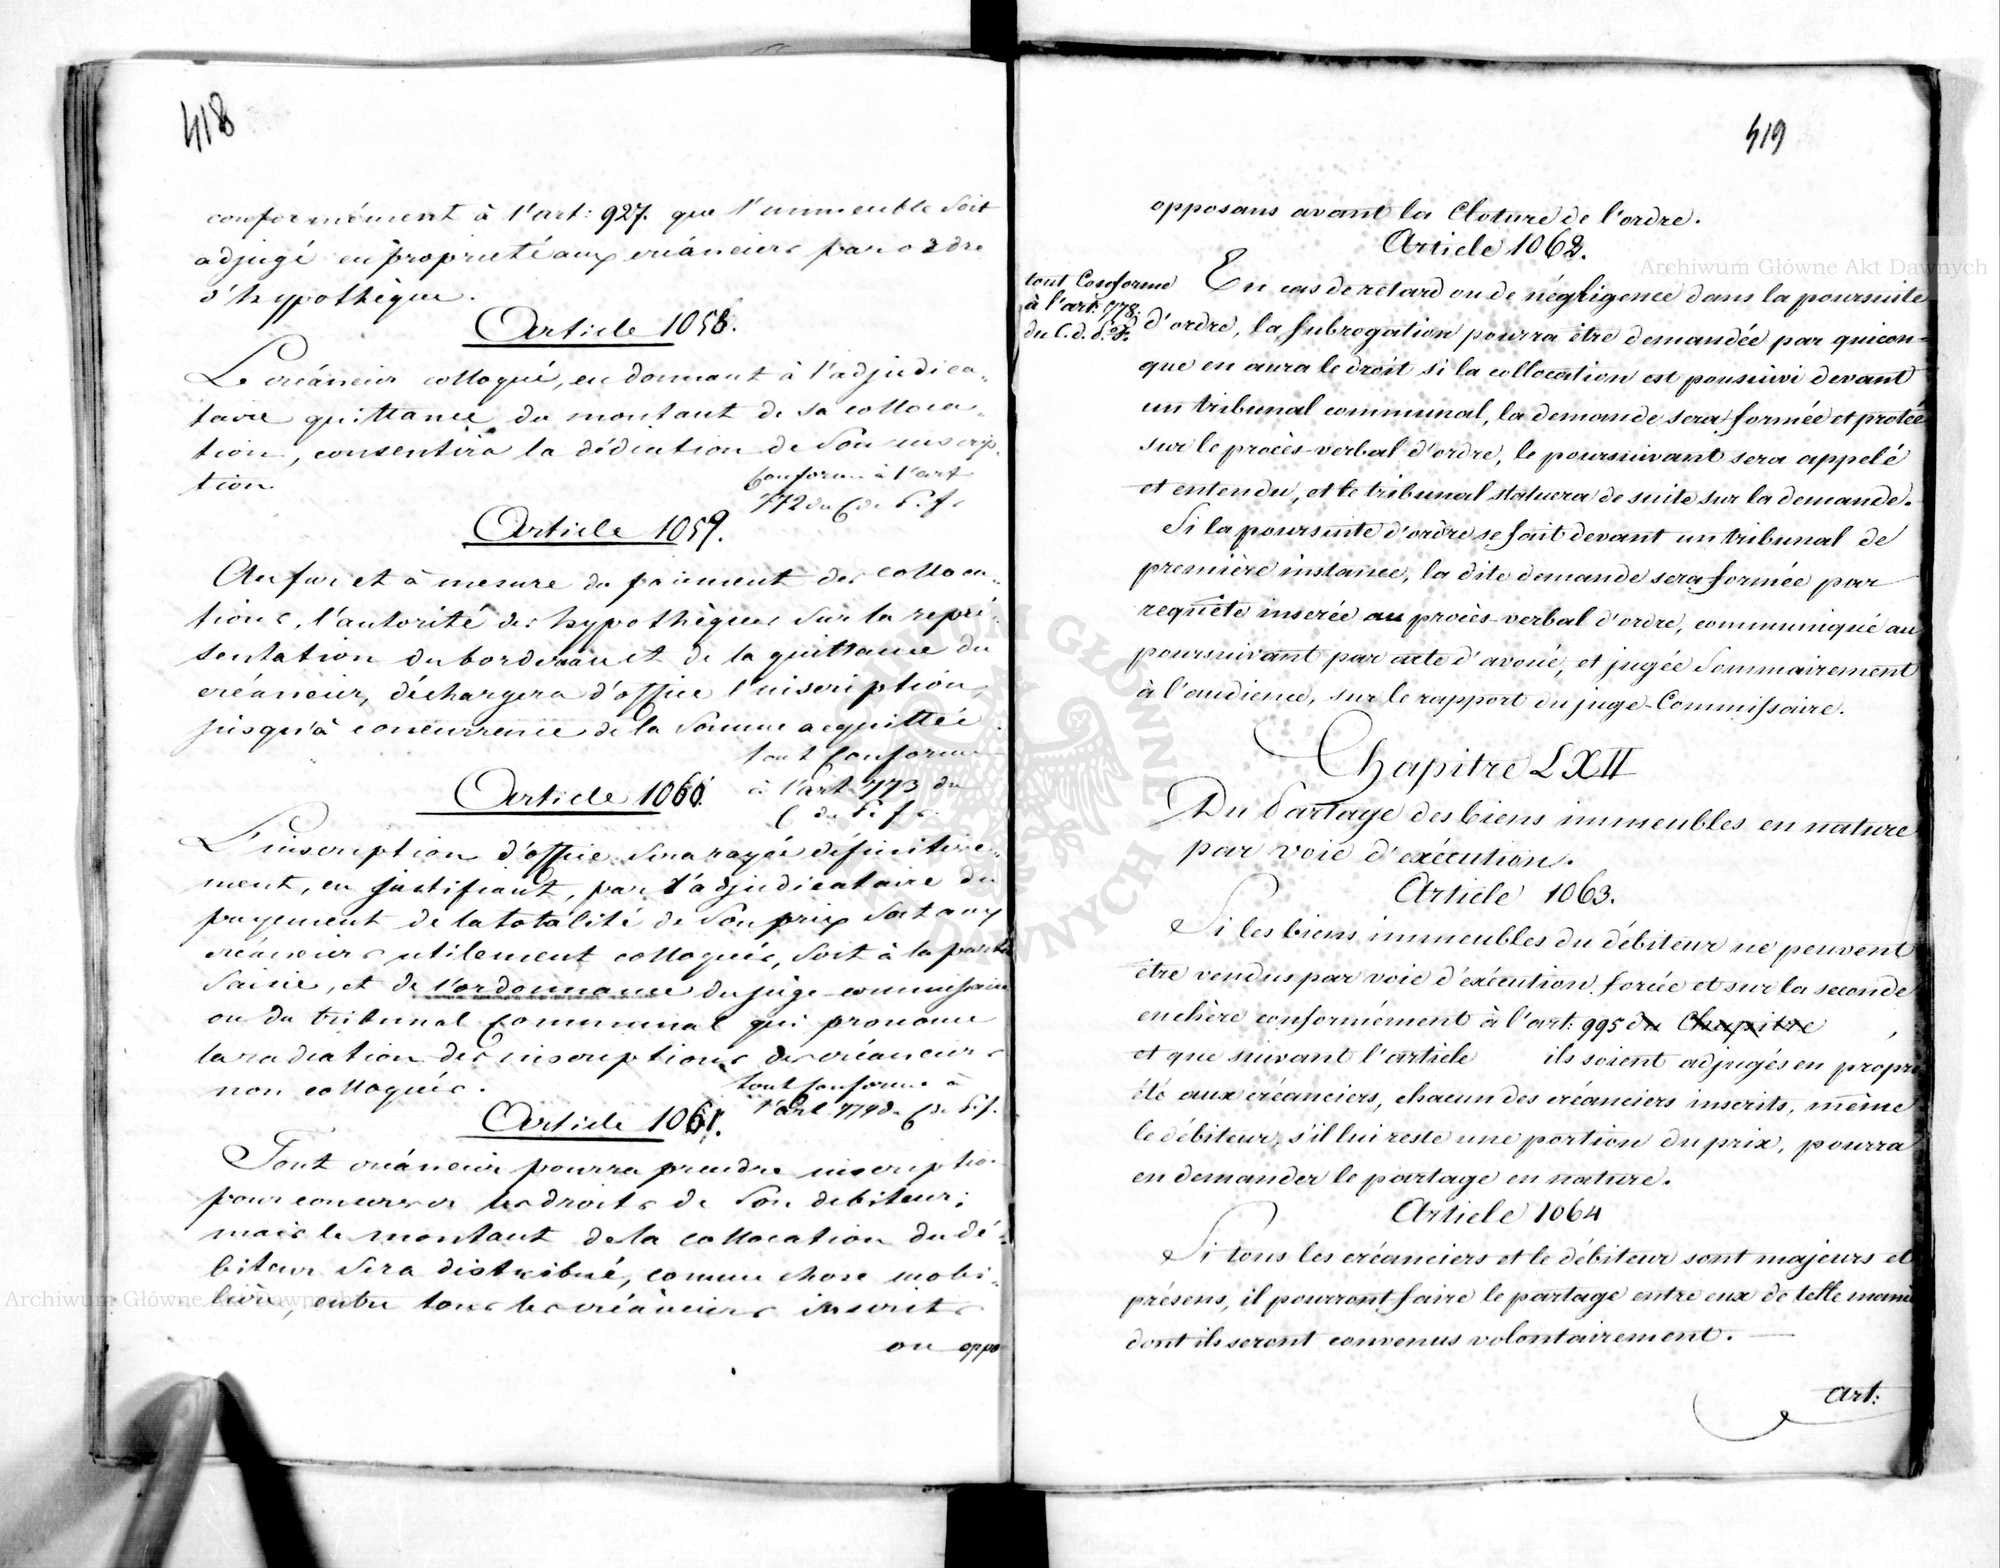 418
conformément à l'art: 927. que l'immeuble soit
adjugé en proprieté aux créanciers par ordre
d'hypothèque.
Article 1058.
Le créancier colloqué, en donnant à l'adjudica„
taire quittance du montant de sa colloca„
tion, consentira la radiation de son inscrip„
tion
Conforme à l'art
772 du C. de P. f.
Article 1059.
Au fur et à mesure du paiement des colloca„
tions, l'autorité des hypothèques sur la repré„
sentation du bordereau et de la quittance du
créancier, déchargera d'office l'inscription,
jusqu'à concurrence de la somme acquittée.
tout conforme
à l'art 773 du
C. de P. f.
Article 1060.
L'inscription d'office sera rayée définitive„
ment, en justifiant, par l'adjudicataire du
payement de la totalité de son prix soit aux
créanciers utilement colloqués, soit à la partie
saisie, et de l'ordonnance du juge-commissaire
ou du tribunal Communal qui prononce
la radiation des inscriptions des créanciers
non colloqués.
tout conforme à
l'art 774 du C. de P. f.
Article 1061.
Tout créancier pourra prendre inscription
pour conserver les droits de son debiteur;
mais le montant de la collocation du dé„
biteur sera distribué, comme chose mobi„
lière, entre tous les créanciers inscrits
ou oppo
419
opposans avant la Cloture de l'ordre.
Article 1062.
tout Conforme
à l'art. 778.
du C. d. P. F.
En cas de retard ou de négligence dans la poursuite
d'ordre, la subrogation pourra être demandée par quicon=
que en aura le droit si la collocation est poursuivi devant
un tribunal communal, la demande sera formée et protée
sur le procès-verbal d'ordre, le poursuivant sera appelé
et entendu, et le tribunal statuera de suite sur la demande.
Si la poursuite d'ordre se fait devant un tribunal de
première instance, la dite demande sera formée par
requête inserée au procès-verbal d'ordre, communiqué au
poursuivant par acte d'avoué, et jugée sommairement
à l'audience, sur le rapport du juge-Commissaire.
Chapitre LXII
Du Partage des biens immeubles en nature
par voie d'exécution.
Article 1063.
Si les biens immeubles du débiteur ne peuvent
être vendus par voie d'exécution forcée et sur la seconde
enchère conformément à l'art: 995 du Chapitre ,
et que suivant l'article ils soient adjugés en propri
été aux créanciers, chacun des créanciers inscrits, même
le débiteur, s'il lui reste une portion du prix, pourra
en demander le partage en nature.
Article 1064
Si tous les créanciers et le débiteur sont majeurs et
présens, il pourront faire le partage entre eux de telle mani
dont ils seront convenus volontairement. —
Art:
Archiwum Główne Akt Dawnych
Archiwum Główne Akt Dawnych